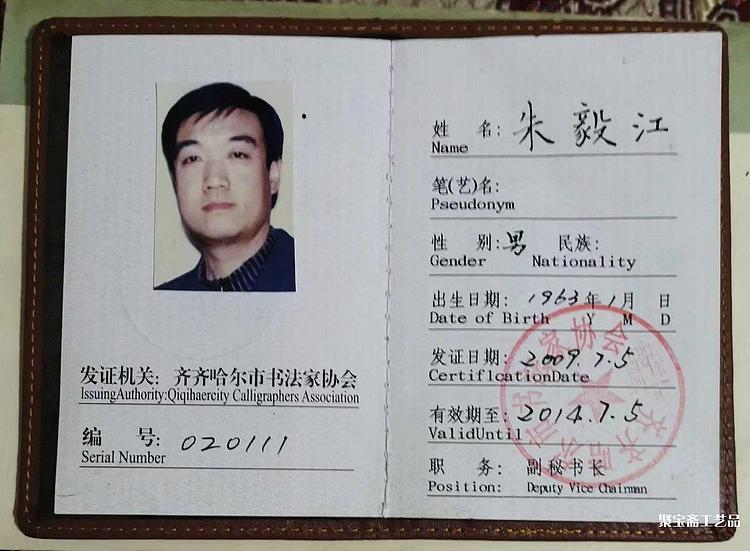 发证机关：齐齐哈尔市书法家协会
IssuingAuthority:Qiqihaercity Calligraphers Association
编 号：020111
Serial Number
姓 名：朱毅江
Name
笔(艺)名：
Pseudonym
性 别：男 民族：
Gender Nationality
出生日期：1963年1月 日
Date of Birth Y M D
发证日期：2009.7.5
CertiflcationDate
有效期至：2014.7.5
ValidUntil
职 务：副秘书长
Position: Deputy Vice Chainman
聚宝斋工艺品